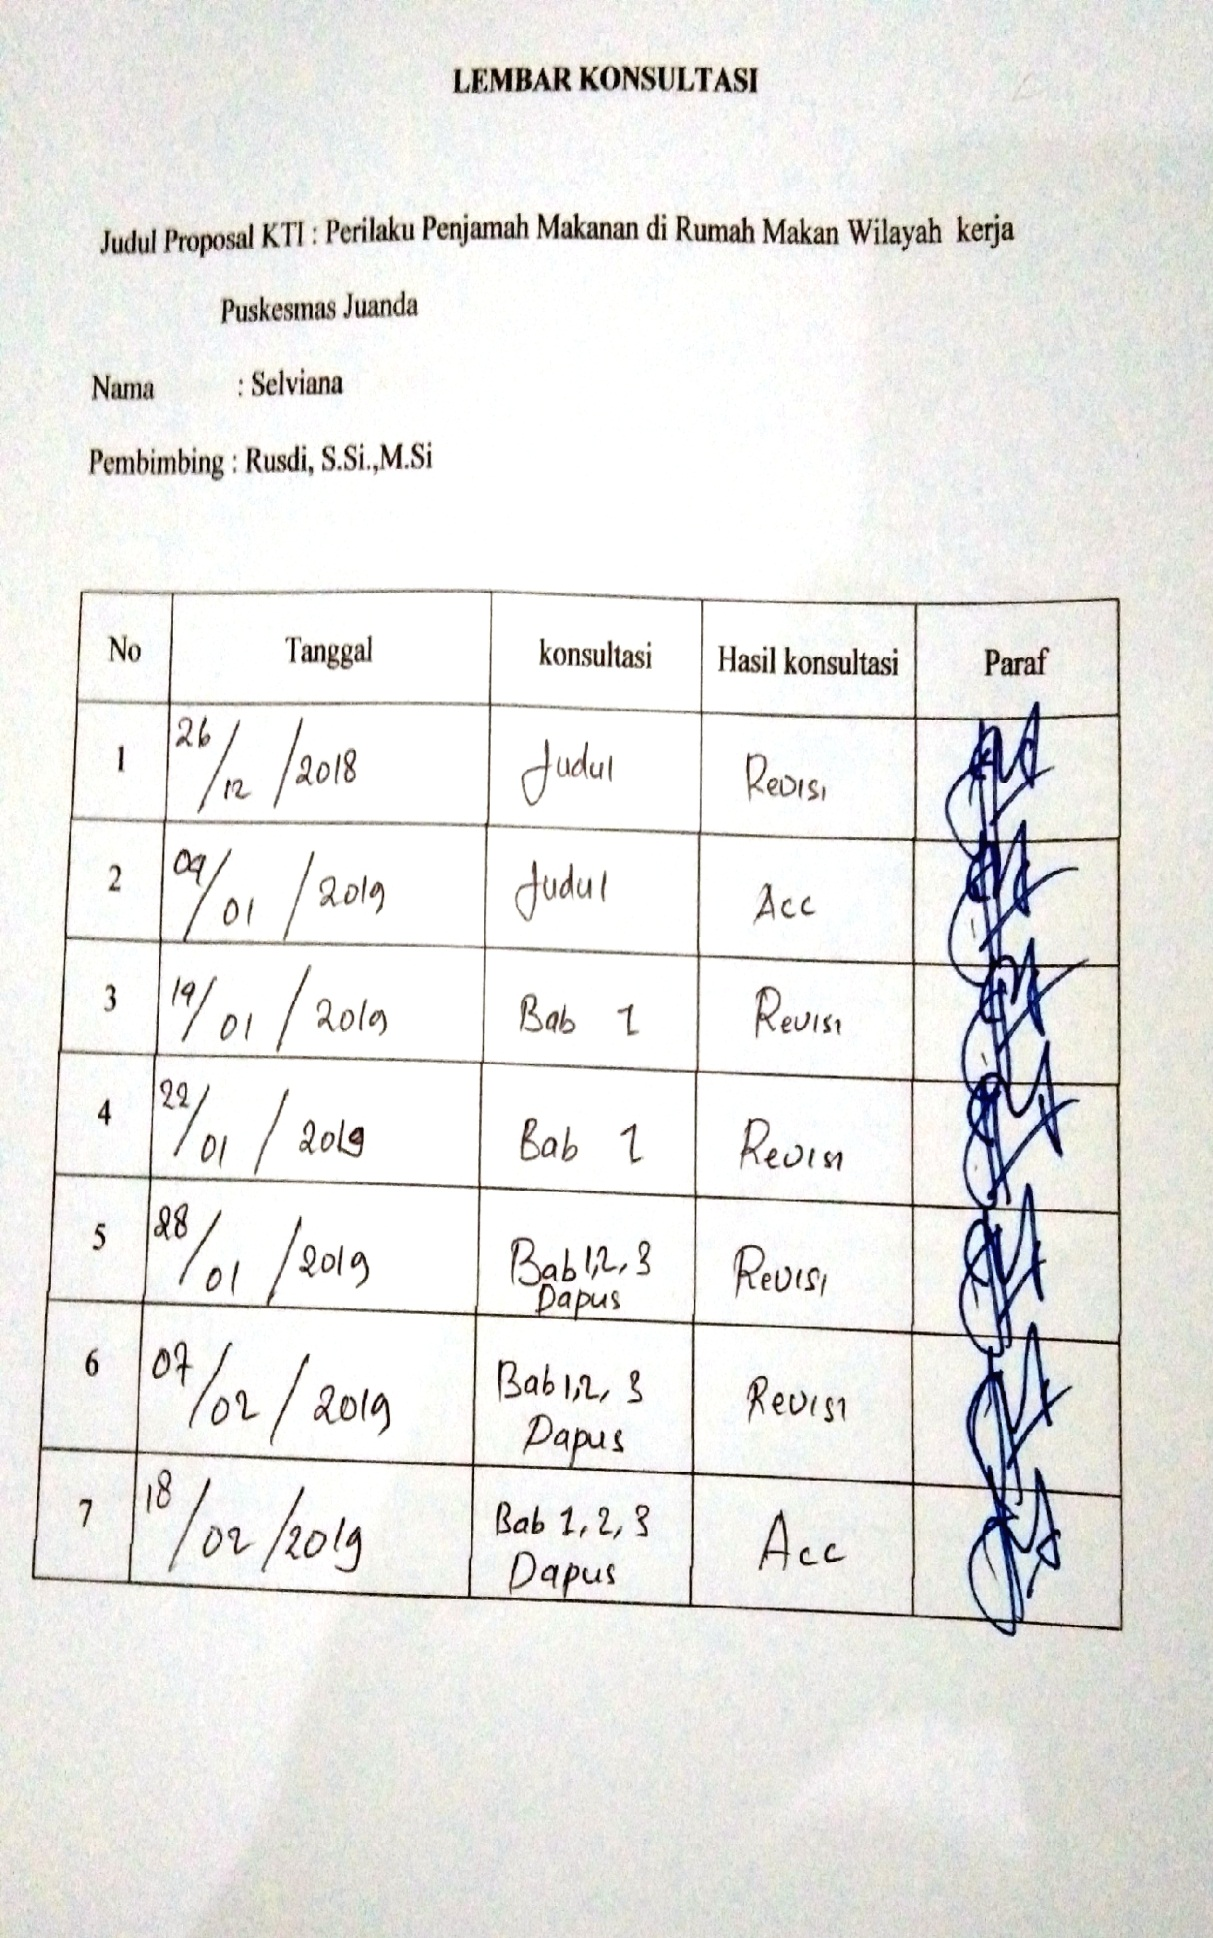 LEMBAR KONSULTASI
Judul Proposal KTI : Perilaku Penjamah Makanan di Rumah Makan Wilayah kerja
Puskesmas Juanda
Nama : Selviana
Pembimbing : Rusdi, S.Si.,M.Si
No Tanggal konsultasi Hasil konsultasi Paraf
1 26/12/2018 Judul Revisi
2 09/01/2019 Judul Acc
3 19/01/2019 Bab 1 Revisi
4 22/01/2019 Bab 1 Revisi
5 28/01/2019 Bab 1,2,3 Revisi
Dapus
6 07/02/2019 Bab 1,2,3 Revisi
Dapus
7 18/02/2019 Bab 1,2,3 Acc
Dapus